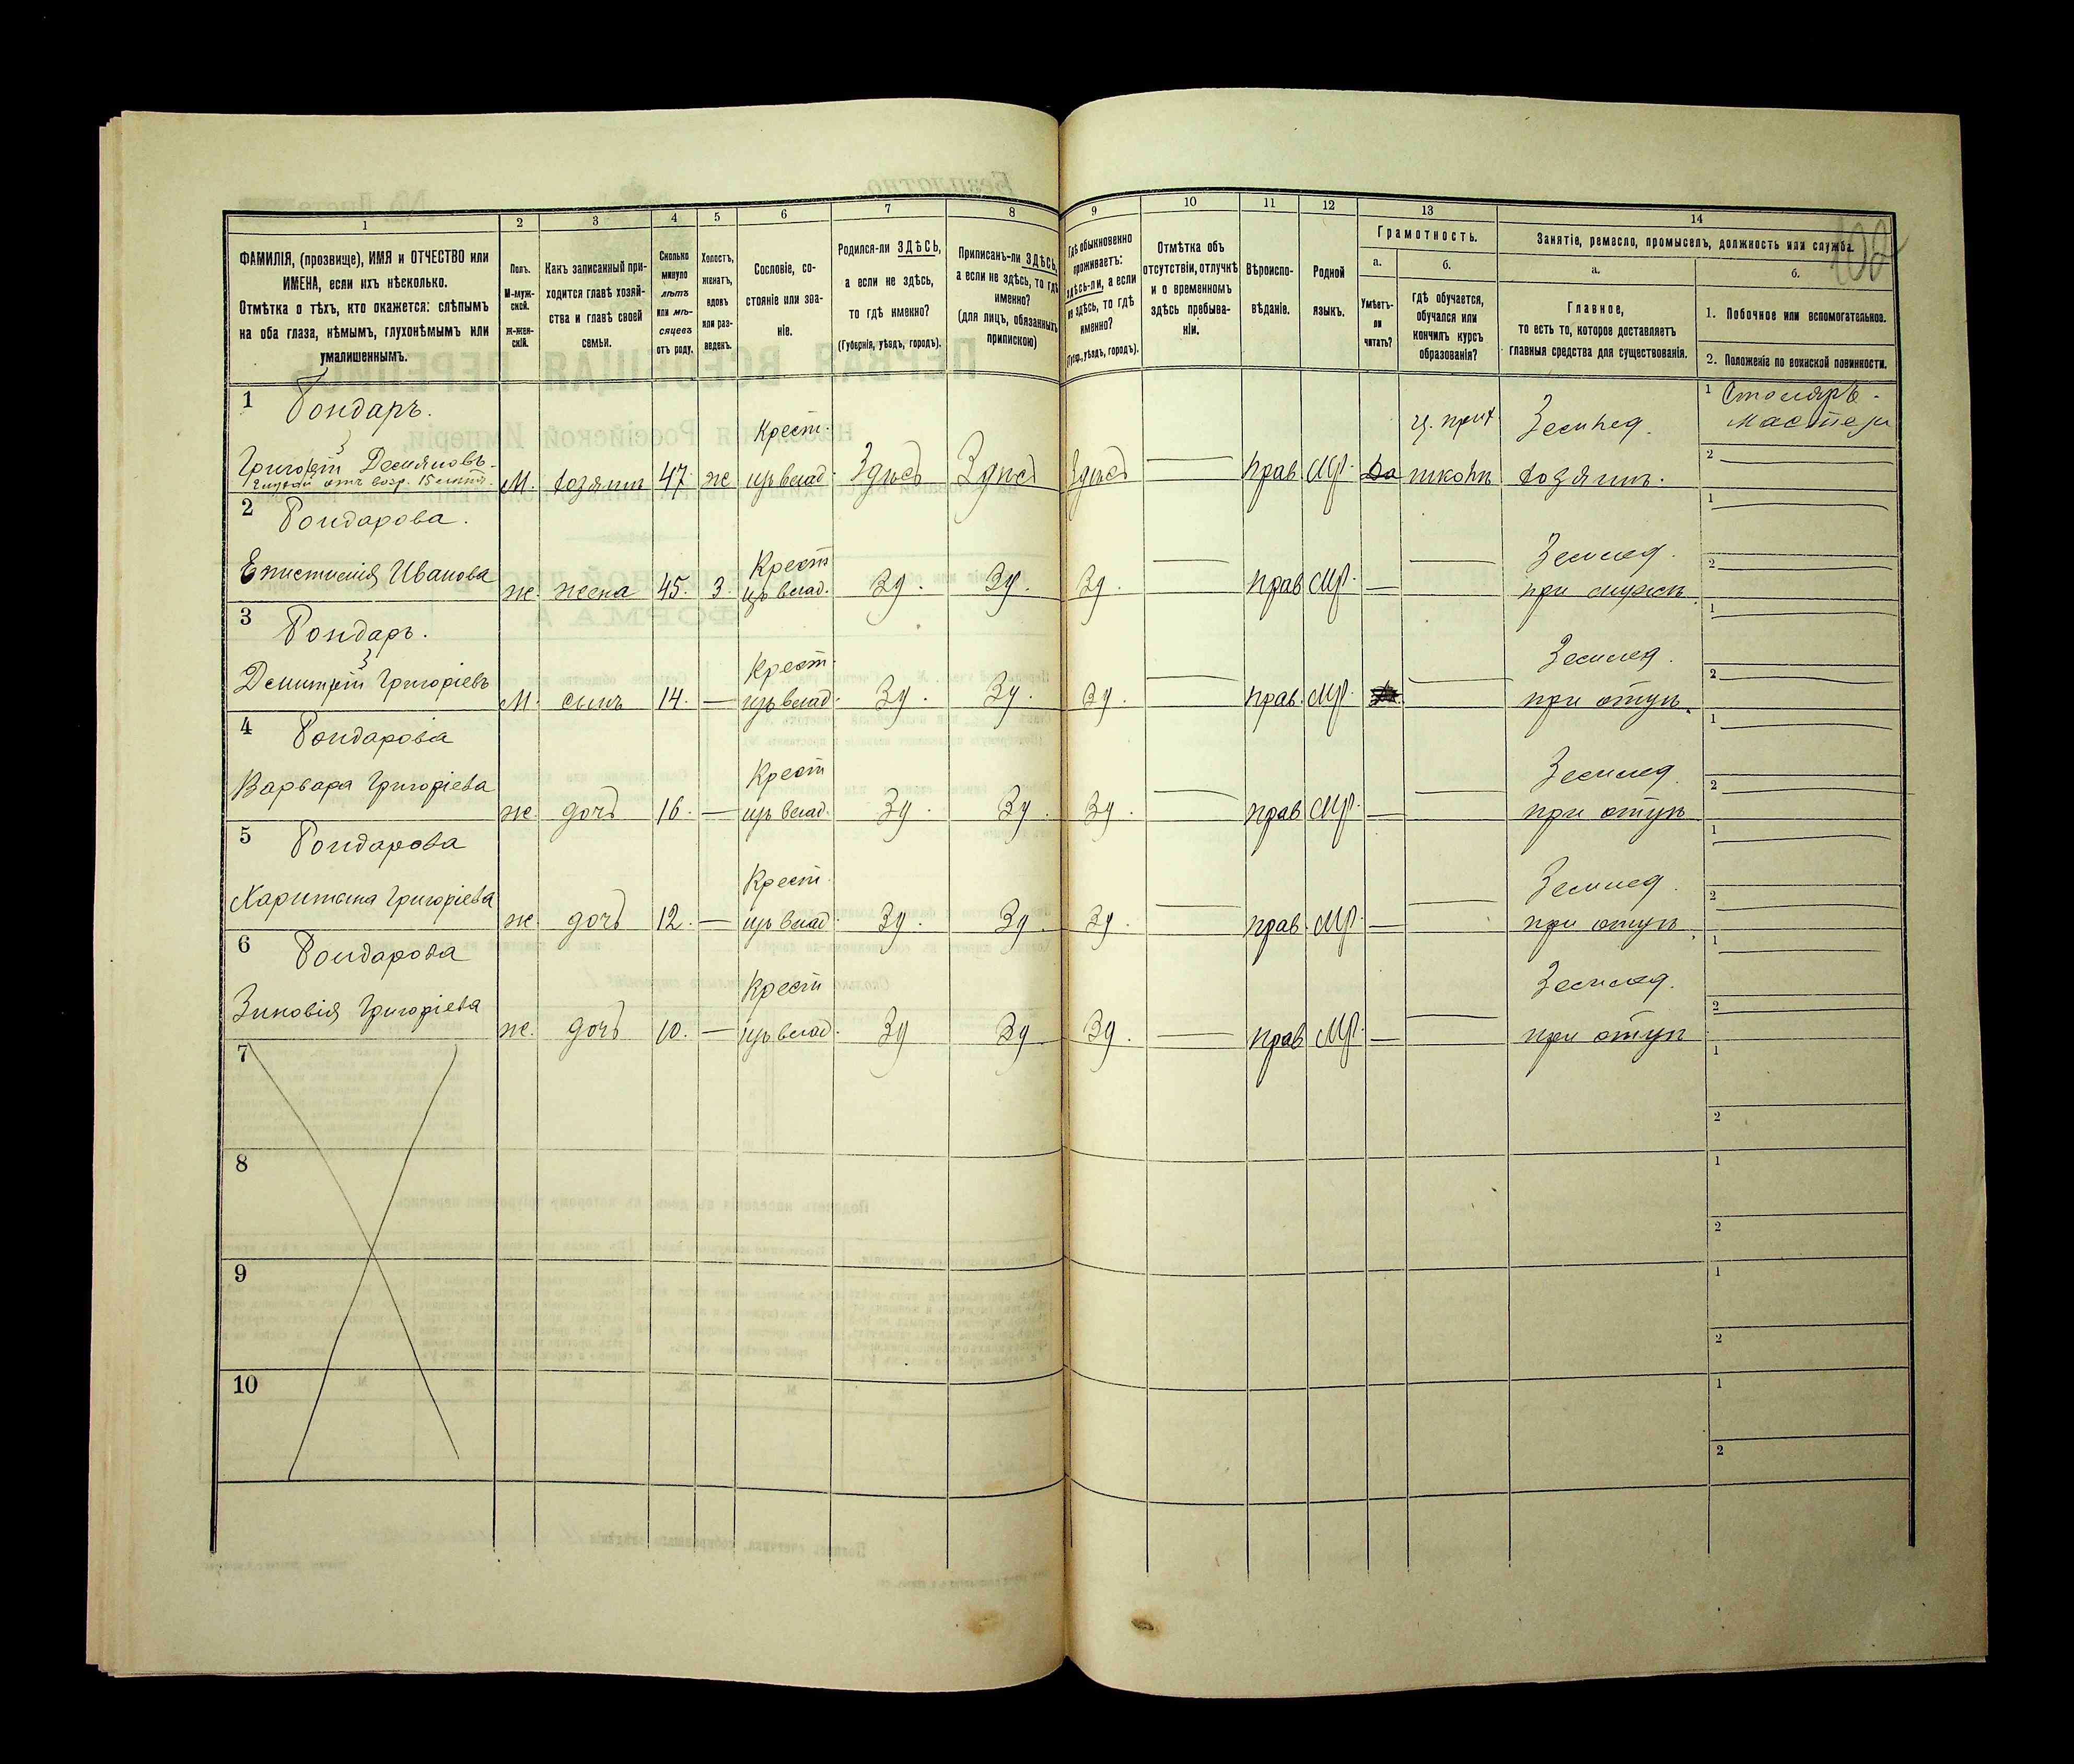 102
1
2
3
4
5
6
7
8
9
10
11
12
13
14
ФАМИЛІЯ, (прозвище), ИМЯ и ОТЧЕСТВО или
ИМЕНА, если ихъ нѣсколько.
Отмѣтка о тѣхъ, кто окажется: слѣпымъ
на оба глаза, нѣмымъ, глухонѣмымъ или
умалишеннымъ.
Полъ.
М-муж-
ской.
Ж-жен-
скій.
Какъ записанный при-
ходится главѣ хозяй-
ства и главѣ своей
семьи.
Сколько
минуло
лѣтъ
или мѣ-
сяцевъ
отъ роду.
Холостъ,
женатъ,
вдовъ
или раз-
веденъ.
Сословіе, со-
стояніе или зва-
ніе.
Родился-ли ЗДѢСЬ,
а если не здѣсь,
то гдѣ именно?
(Губернія, уѣздъ, городъ).
Приписанъ-ли ЗДѢСЬ,
а если не здѣсь, то гдѣ
именно?
(для лицъ, обязанныхъ
припискою)
Гдѣ обыкновенно
проживаетъ:
здѣсь-ли, а если
не здѣсь, то гдѣ
именно?
(Губер., уѣздъ, городъ).
Отмѣтка объ
отсутствіи, отлучкѣ
и о временномъ
здѣсь пребыва-
ніи.
Вѣроиспо-
вѣданіе.
Родной
языкъ.
Грамотность.
а.
Умѣетъ-
ли
читать?
б.
Гдѣ обучается,
обучался или
кончилъ курсъ
образованія?
Занятіе, ремесло, промыселъ, должность или служба.
а.
Главное,
то есть то, которое доставляетъ
главныя средства для существованія.
б.
1. Побочное или вспомогательное.
2. Положеніе по воинской повинности.
1 Бондарь.
Григорій Демяновъ
М. хозяинъ 47. ж Крест.
изъ влад. Здѣсь Здѣсь Здѣсь — прав. Мр. Да
школѣ
Землед.
хозяинъ.
1 Столяръ-
2
2 Бондарова.
Епистимія Иванова
ж. жена 45. З. Крест
изъ влад. Зд. Зд. Зд. — прав Мр. — —
Землед.
при мужѣ
1
2
3 Бондарь.
Димитрій Григоріевъ
М. сынъ 14. — Крест.
изъ влад. Зд. Зд. Зд. — прав. Мр. —
Землед.
при отцѣ.
1
2
4 Бондарова
Варвара Григоріева
ж. дочь 16. — Крест
изъ влад. Зд. Зд. Зд. — прав Мр. — —
Землед
при отцѣ
1
2
5 Бондарова
Харитина Григоріева
ж. дочь 12. — Крест.
изъ влад. Зд. Зд. Зд. — прав. Мр. — —
Землед.
при отцѣ.
1
2
6 Бондарова
Зиновія Григоріева
ж. дочь 10. — Крест
изъ влад. Зд Зд Зд. — прав Мр. — —
Землед.
при отцѣ
1
2
7
1
2
8
1
2
9
1
2
10
1
2